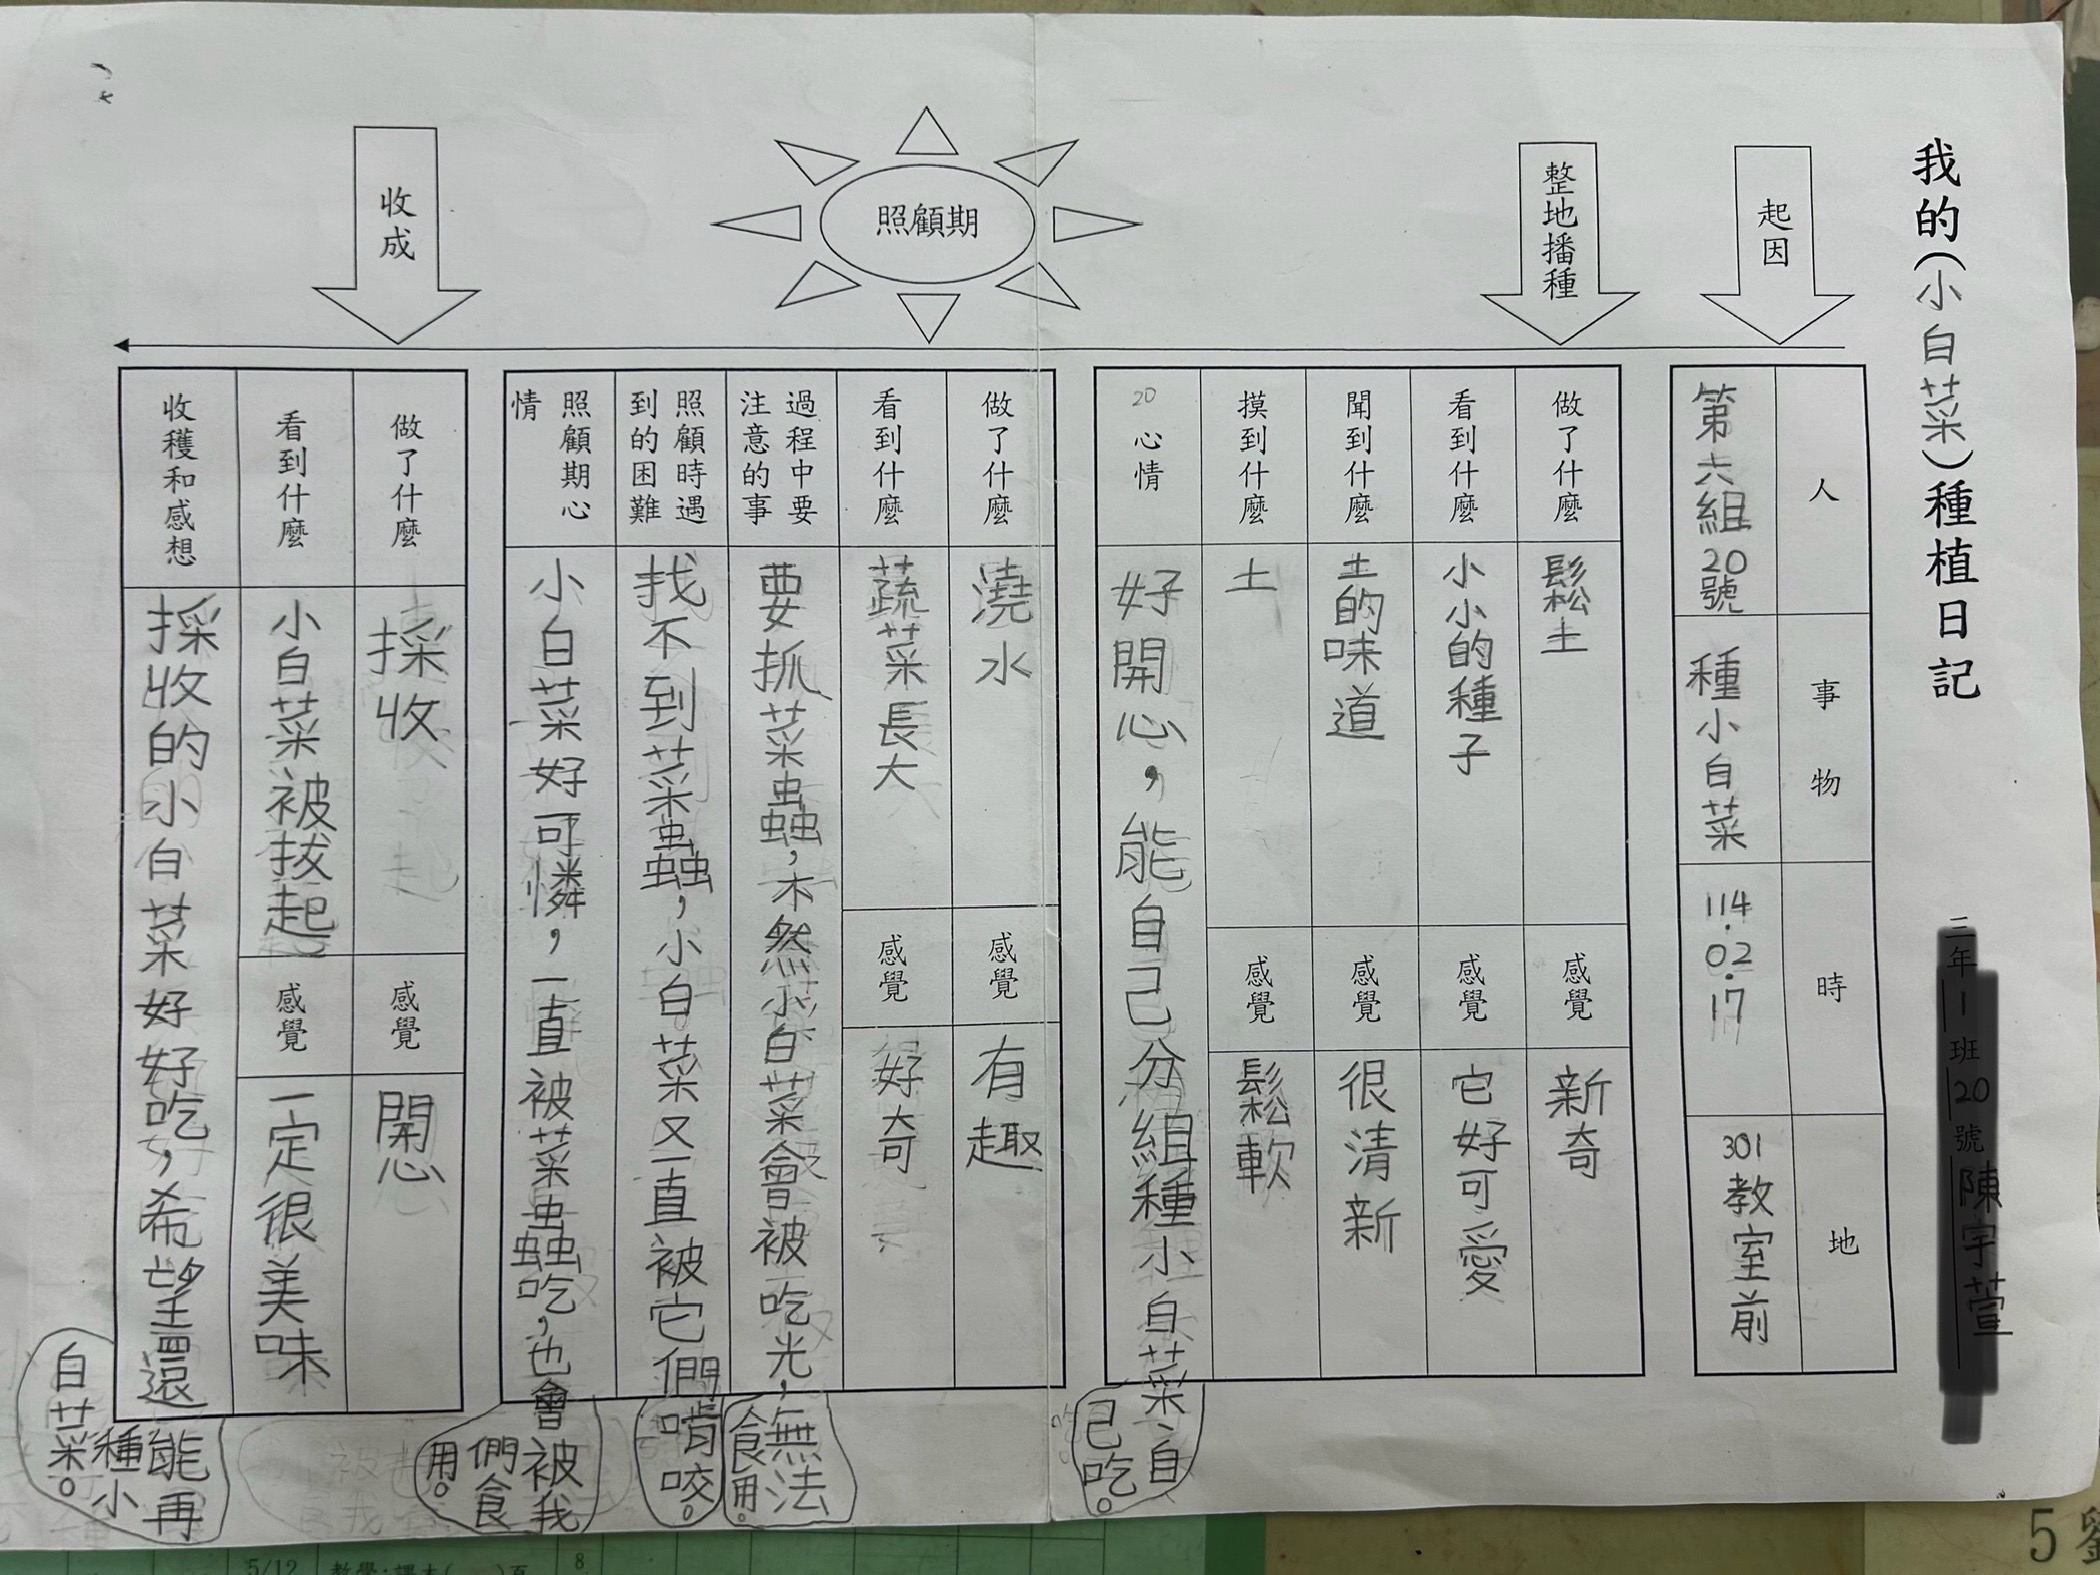 我的(小白菜)種植日記
三年1班20號陳宇萱
起因
人
事物
時
地
第六組20號
種小白菜
114.02.17
301教室前
整地播種
做了什麼
鬆土
感覺
新奇
看到什麼
小小的種子
感覺
它好可愛
聞到什麼
土的味道
感覺
很清新
摸到什麼
土
感覺
鬆軟
20
心情
好開心,能自己分組種小白菜、自
己吃。
照顧期
做了什麼
澆水
感覺
有趣
看到什麼
蔬菜長大
感覺
好奇
過程中要
注意的事
要抓菜蟲,不然小白菜會被吃光,無法
食用。
照顧時遇
到的困難
找不到菜蟲,小白菜又一直被它們啃咬。
照顧期心
情
小白菜好可憐,一直被菜蟲吃,也會被我
們食
用。
收成
做了什麼
採收
感覺
開心
看到什麼
小白菜被拔起
感覺
一定很美味
收穫和感想
採收的小白菜好好吃,希望還能再
種小
白菜。
5/12
8
5